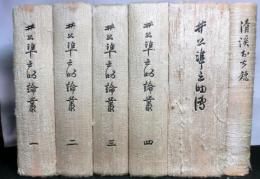 井上準之助論叢 一
井上準之助論叢 二
井上準之助論叢 三
井上準之助論叢 四
井上準之助傳
清溪おち穂